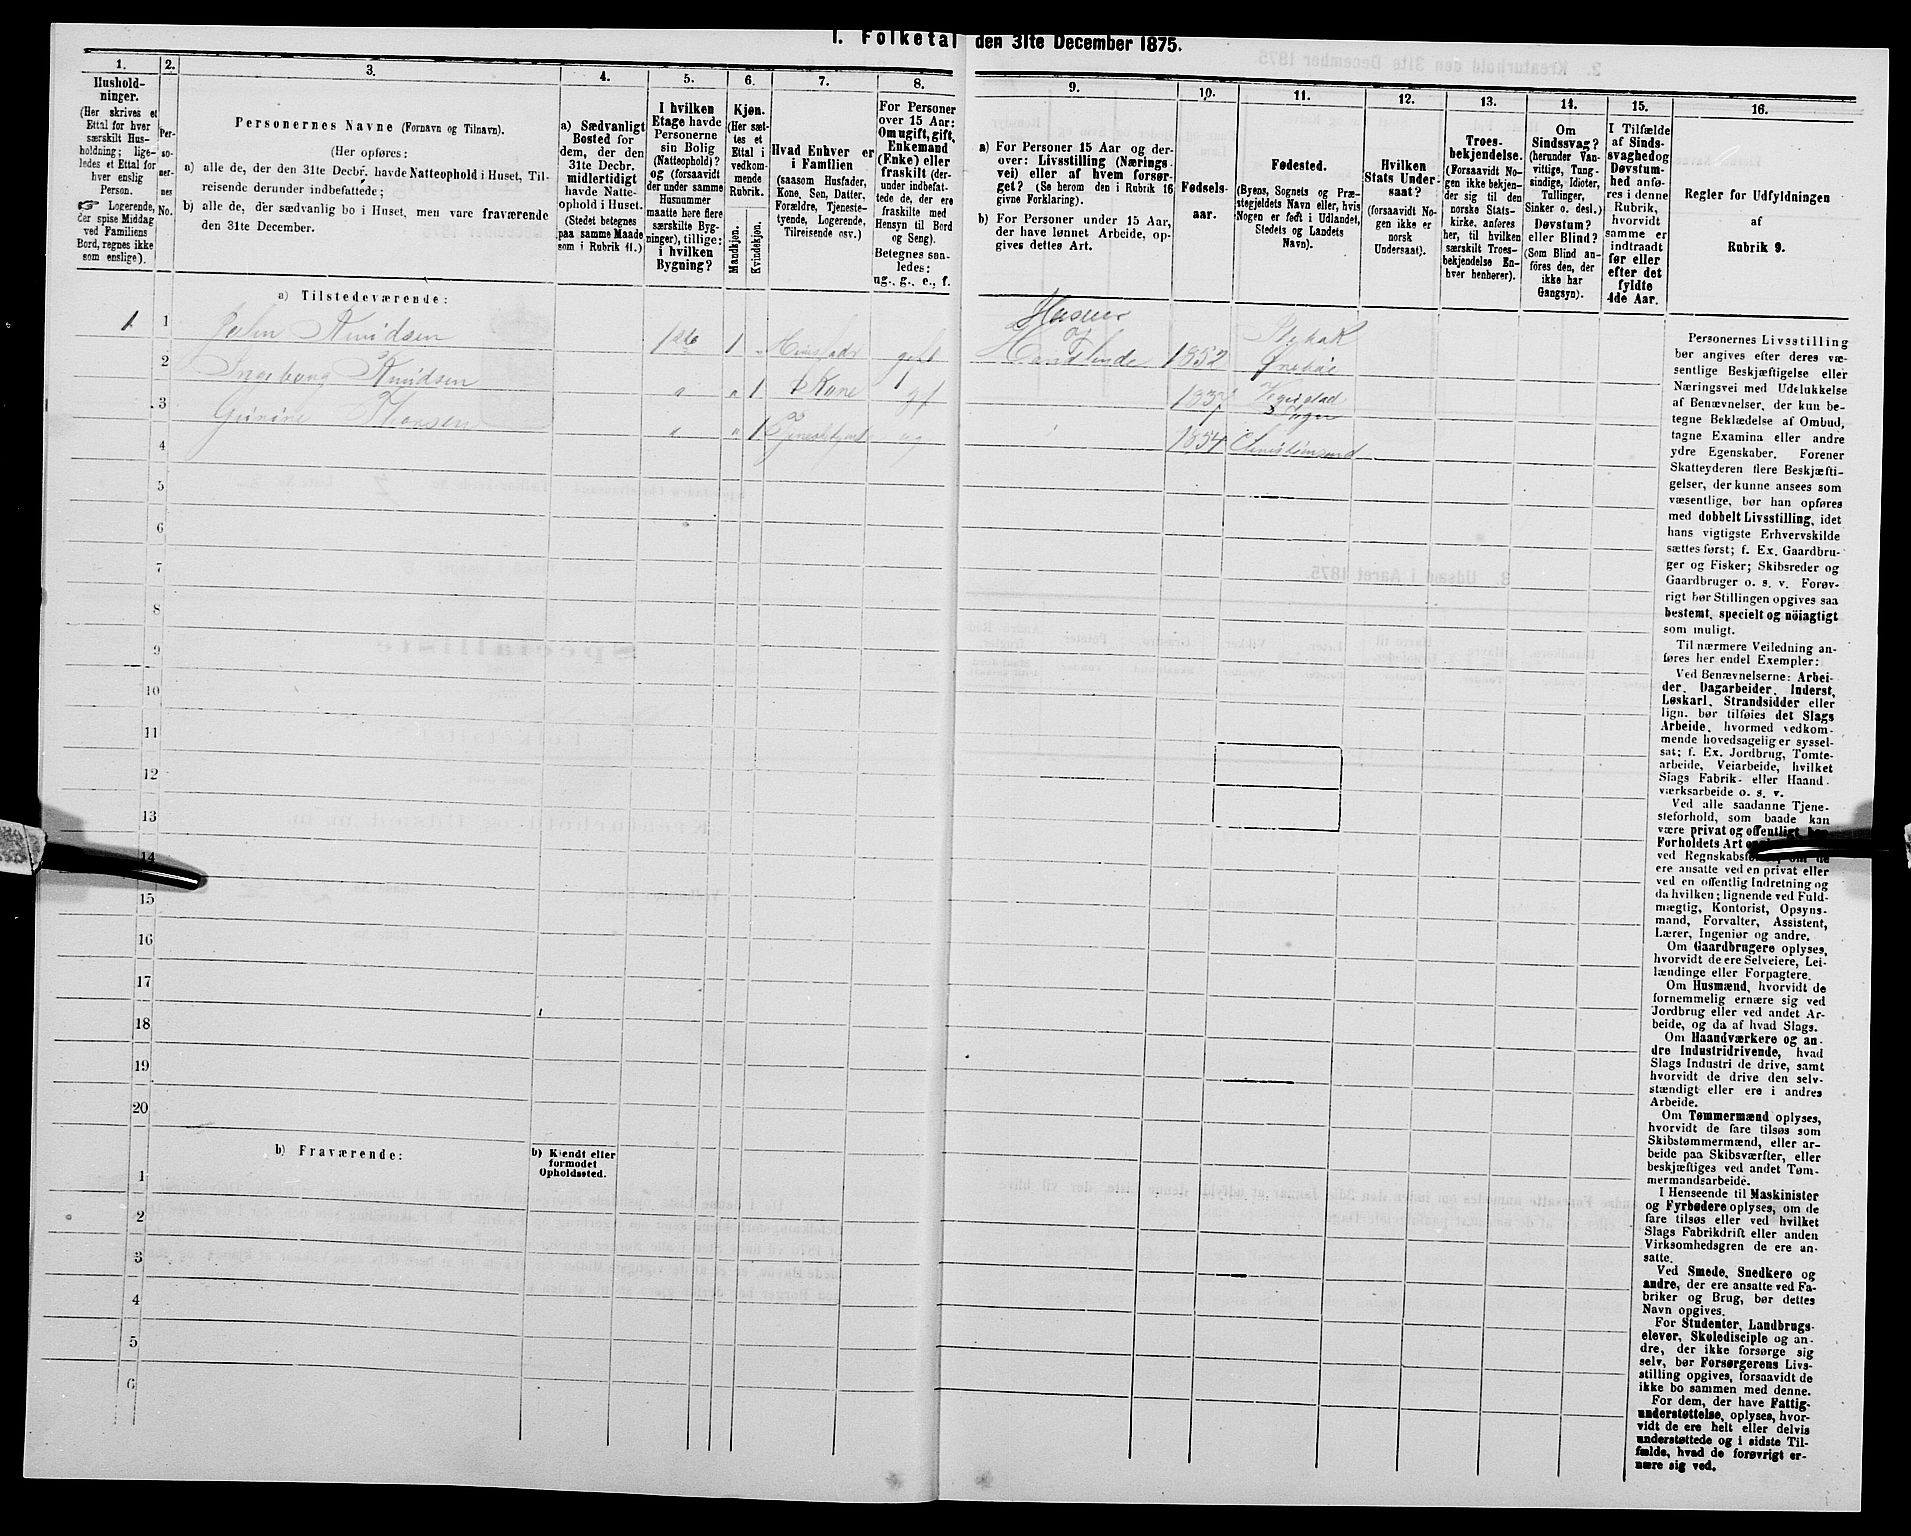 1. Folketal den 31te December 1875.
1.
Hushold-
ninger.
(Her skrives et
Ettal for hver
særskilt Hus-
holdning; lige-
ledes et Ettal for
hver enslig
Person.
☞ Logerende,
der spise Middag
ved Familiens
Bord, regnes ikke
som enslige).
2.
Per-
so-
ner-
nes
No.
3.
Personernes Navne (Fornavn og Tilnavn).
(Her opføres:
a) alle de, der den 31te Decbr. havde Natteophold i Huset, Til-
reisende derunder indbefattede;
b) alle de, der sædvanlig bo i Huset, men vare fraværende
den 31te December.
4.
a) Sædvanligt
Bosted for
dem, der den
31te Decbr.
midlertidigt
havde Natte-
ophold i Huset.
(Stedet betegnes
paa samme Maade
som i Rubrik 11.)
5.
I hvilken
Etage havde
Personerne
sin Bolig
(Natteophold)?
og (forsaavidt
der under samme
Husnummer
maatte høre flere
særskilte Byg-
ninger), tillige:
i hvilken
Bygning?
6.
Kjøn.
(Her sæt-
tes et
Ettal i
vedkom-
mende
Rubrik.
Mandkjøn.
Kvindekjøn.
7.
Hvad Enhver er
i Familien
(saasom Husfader,
Kone, Søn, Datter,
Forældre, Tjeneste-
tyende, Logerende,
Tilreisende osv.)
8.
For Personer
over 15 Aar:
Om ugift, gift,
Enkemand
(Enke) eller
fraskilt (der-
under indbefat-
tede de, der ere
fraskilte med
Hensyn til Bord
og Seng).
Betegnes saa-
ledes:
ug., g., e., f.
9.
a) For Personer 15 Aar og der-
over: Livsstilling (Nærings-
vei) eller af hvem forsør-
get? (Se herom den i Rubrik 16
givne Forklaring).
b) For Personer under 15 Aar,
der have lønnet Arbeide, op-
gives dettes Art.
10.
Fødsels-
aar.
11.
Fødested.
(Byens, Sognets og Præ-
stegjeldets Navn eller, hvis
Nogen er født i Udlandet,
Stedets og Landets
Navn).
12.
Hvilken
Stats Under-
saat?
(forsaavidt No-
gen ikke er
norsk
Undersaat).
13.
Troes-
bekjendelse.
(Forsaavidt No-
gen ikke bekjen-
der sig til den
norske Stats-
kirke, anføres
her, til hvilken
særskilt Troes-
bekjendelse En-
hver henhører).
14.
Om
Sindssvag?
(herunder Van-
vittige, Tung-
sindige, Idioter,
Tullinger,
Sinker o. desl.)
Døvstum?
eller Blind?
(Som Blind an-
føres den, der
ikke har
Gangsyn).
15.
I Tilfælde
af Sinds-
svaghed og
Døvstum-
hed anfø-
res i denne
Rubrik,
hvorvidt
samme er
indtraadt
før eller
efter det
fyldte
4de Aar.
16.
Regler for Udfyldningen
af
Rubrik 9.
a) Tilstedeværende:
1 1 John Knudsen 1 Huusfader gift 1852
2 Ingeborg Knudsen " " 1 Kone gf 1837
3 Thorsen " " 1 ug 1854 Christiansand
4
5
6
7
8
9
10
11
12
13
14
15
16
17
18
19
20
b) Fraværende:
b) Kjendt eller
formodet
Opholdssted.
1
2
3
4
5
6
Personernes Livsstilling
bør angives efter deres væ-
sentlige Beskjæftigelse eller
Næringsvei med Udelukkelse
af Benævnelser, der kun be-
tegne Beklædelse af Ombud,
tagne Examina eller andre
ydre Egenskaber. Forener
Skatteyderen flere Beskjæfti-
gelser, der kunne ansees som
væsentlige, bør han opføres
med dobbelt Livsstilling, idet
hans vigtigste Erhvervskilde
sættes først; f. Ex. Gaardbru-
ger og Fisker; Skibsreder og
Gaardbruger o. s. v. Forøv-
rigt bør Stillingen opgives saa
bestemt, specielt og nöiagtigt
som muligt.
Til nærmere Veiledning an-
føres her endel Exempler:
Ved Benævnelserne: Arbei-
der, Dagarbeider, Inderst,
Løskarl, Strandsidder eller
lign. bør tilføies det Slags
Arbeide, hvormed vedkom-
mende hovedsagelig er syssel-
sat; f. Ex. Jordbrug, Tomte-
arbeide, Veiarbeide, hvilket
Slags Fabrik- eller Haand-
værksarbeide o. s. v.
Ved alle saadanne Tjene-
steforhold, som baade kan
være privat og offentligt,
Forholdets Art
ved
ere ansatte ved en privat eller
ved en offentlig Indretning og
da hvilken; lignende ved Fuld-
mægtig, Kontorist, Opsyns-
mand, Forvalter, Assistent,
Lærer, Ingeniør og andre.
Om Gaardbrugere oplyses,
hvorvidt de ere Selveiere, Lei-
lændinge eller Forpagtere.
Om Husmænd, hvorvidt de
fornemmelig ernære sig ved
Jordbrug eller ved andet Ar-
beide, og da af hvad Slags.
Om Haandværkere og an-
dre Industridrivende, hvad
Slags Industri de drive, samt
hvorvidt de drive den selv-
stændigt eller ere i andres
Arbeide.
Om Tømmermænd oplyses,
hvorvidt de fare tilsøs som
Skibstømmermænd, eller ar-
beide paa Skibsværfter, eller
beskjæftiges ved andet Tøm-
mermandsarbeide.
I Henseende til Maskinister
og Fyrbødere oplyses, om de
fare tilsøs eller ved hvilket
Slags Fabrikdrift eller anden
Virksomhedsgren de ere an-
satte.
Ved Smede, Snedkere og
andre, der ere ansatte ved Fa-
briker og Brug, bør dettes
Navn opgives.
For Studenter, Landbrugs-
elever, Skoledisciple og an-
dre, der ikke forsørge sig
selv, bør Forsørgerens Livs-
stilling opgives, forsaavidt de
ikke bo sammen med denne.
For dem, der have Fattig-
understøttelse, oplyses, hvor-
vidt de ere helt eller delvis
understøttede og i sidste Til-
fælde, hvad de forøvrigt er-
nære sig ved.